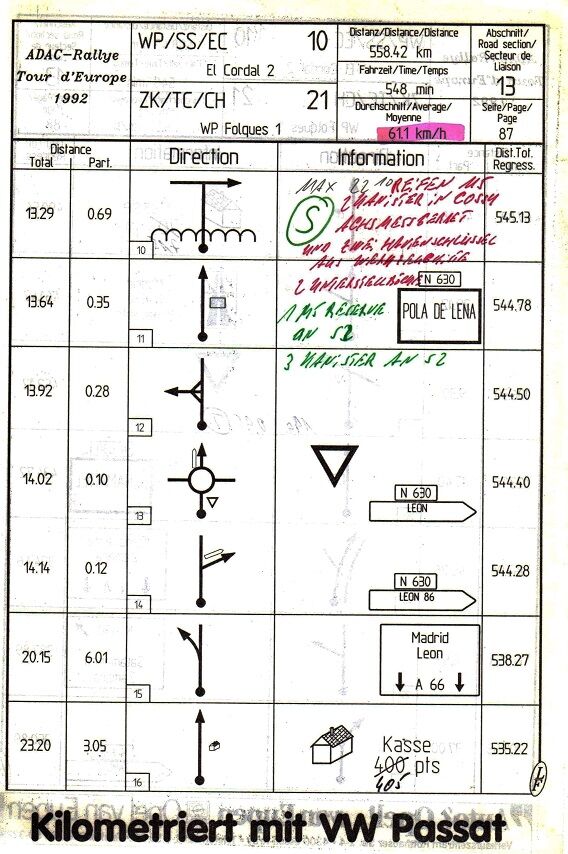 ADAC-Rallye
Tour d'Europe
1992
WP/SS/EC 10
El Cordal 2
ZK/TC/CH 21
WP Folques 1
Distanz/Distance/Distance
558.42 km
Fahrzeit/Time/Temps
548 min
Durchschnitt/Average/
Moyenne
61.1 km/h
Abschnitt/
Road section/
Secteur de
Liaison
13
Seite/Page/
Page
87
Distance
Total Part.
Direction
Information
Dist.Tot.
Regress.
13.29 0.69
10
MAX 22 10 REIFEN M5
S
2 KANISTER IN COSSY
UND ZWEI
545.13
13.64 0.35
11
1 M5 RESERVE
AN S2
N 630
POLA DE LENA
544.78
13.92 0.28
12
3 KANISTER AN S2
544.50
14.02 0.10
13
N 630
LEON
544.40
14.14 0.12
14
N 630
LEON 86
544.28
20.15 6.01
15
Madrid
Leon
A 66
538.27
23.20 3.05
16
Kasse
400 pts
405
535.22
Kilometriert mit VW Passat